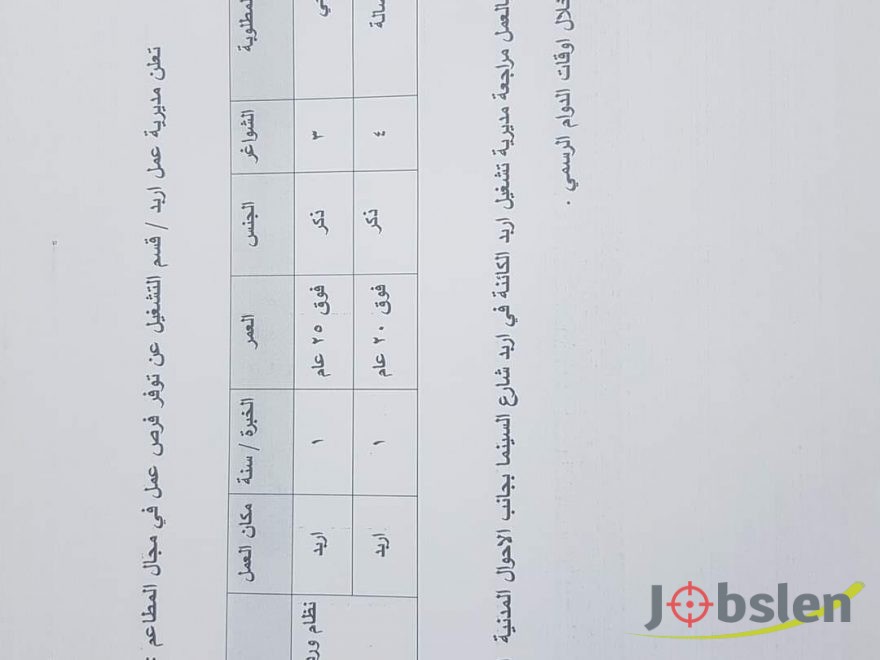 تعلن مديرية عمل اربد / قسم التشغيل عن توفر فرص عمل في مجال المطاعم :
المطلوبة الشواغر الجنس العمر الخبرة / سنة مكان العمل
٣ ذكر فوق ٢٥ عام ١ اربد نظام
٤ ذكر فوق ٢٠ عام ١ اربد
بالعمل مراجعة مديرية تشغيل اربد الكائنة في اربد شارع السينما بجانب الاحوال المدنية
خلال اوقات الدوام الرسمي .
Jobslen